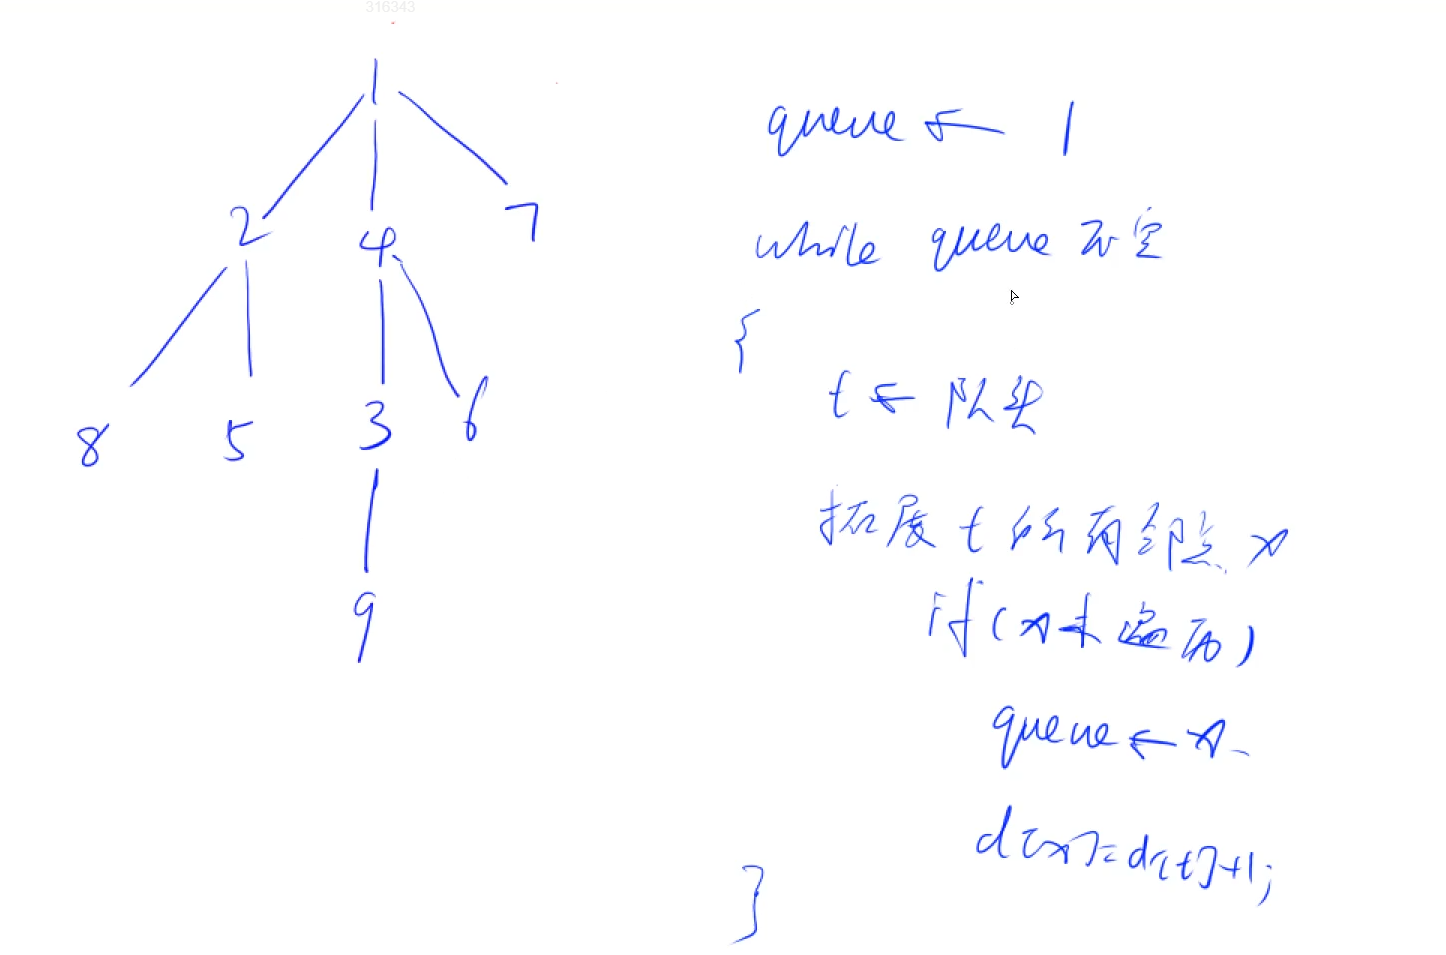 316343
1
2 4 7
8 5 3 6
9
queue ← 1
while queue 不空
{
t ← 队头
拓展 t 所有邻点 x
if (x未遍历)
queue ← x
d[x]=d[t]+1;
}